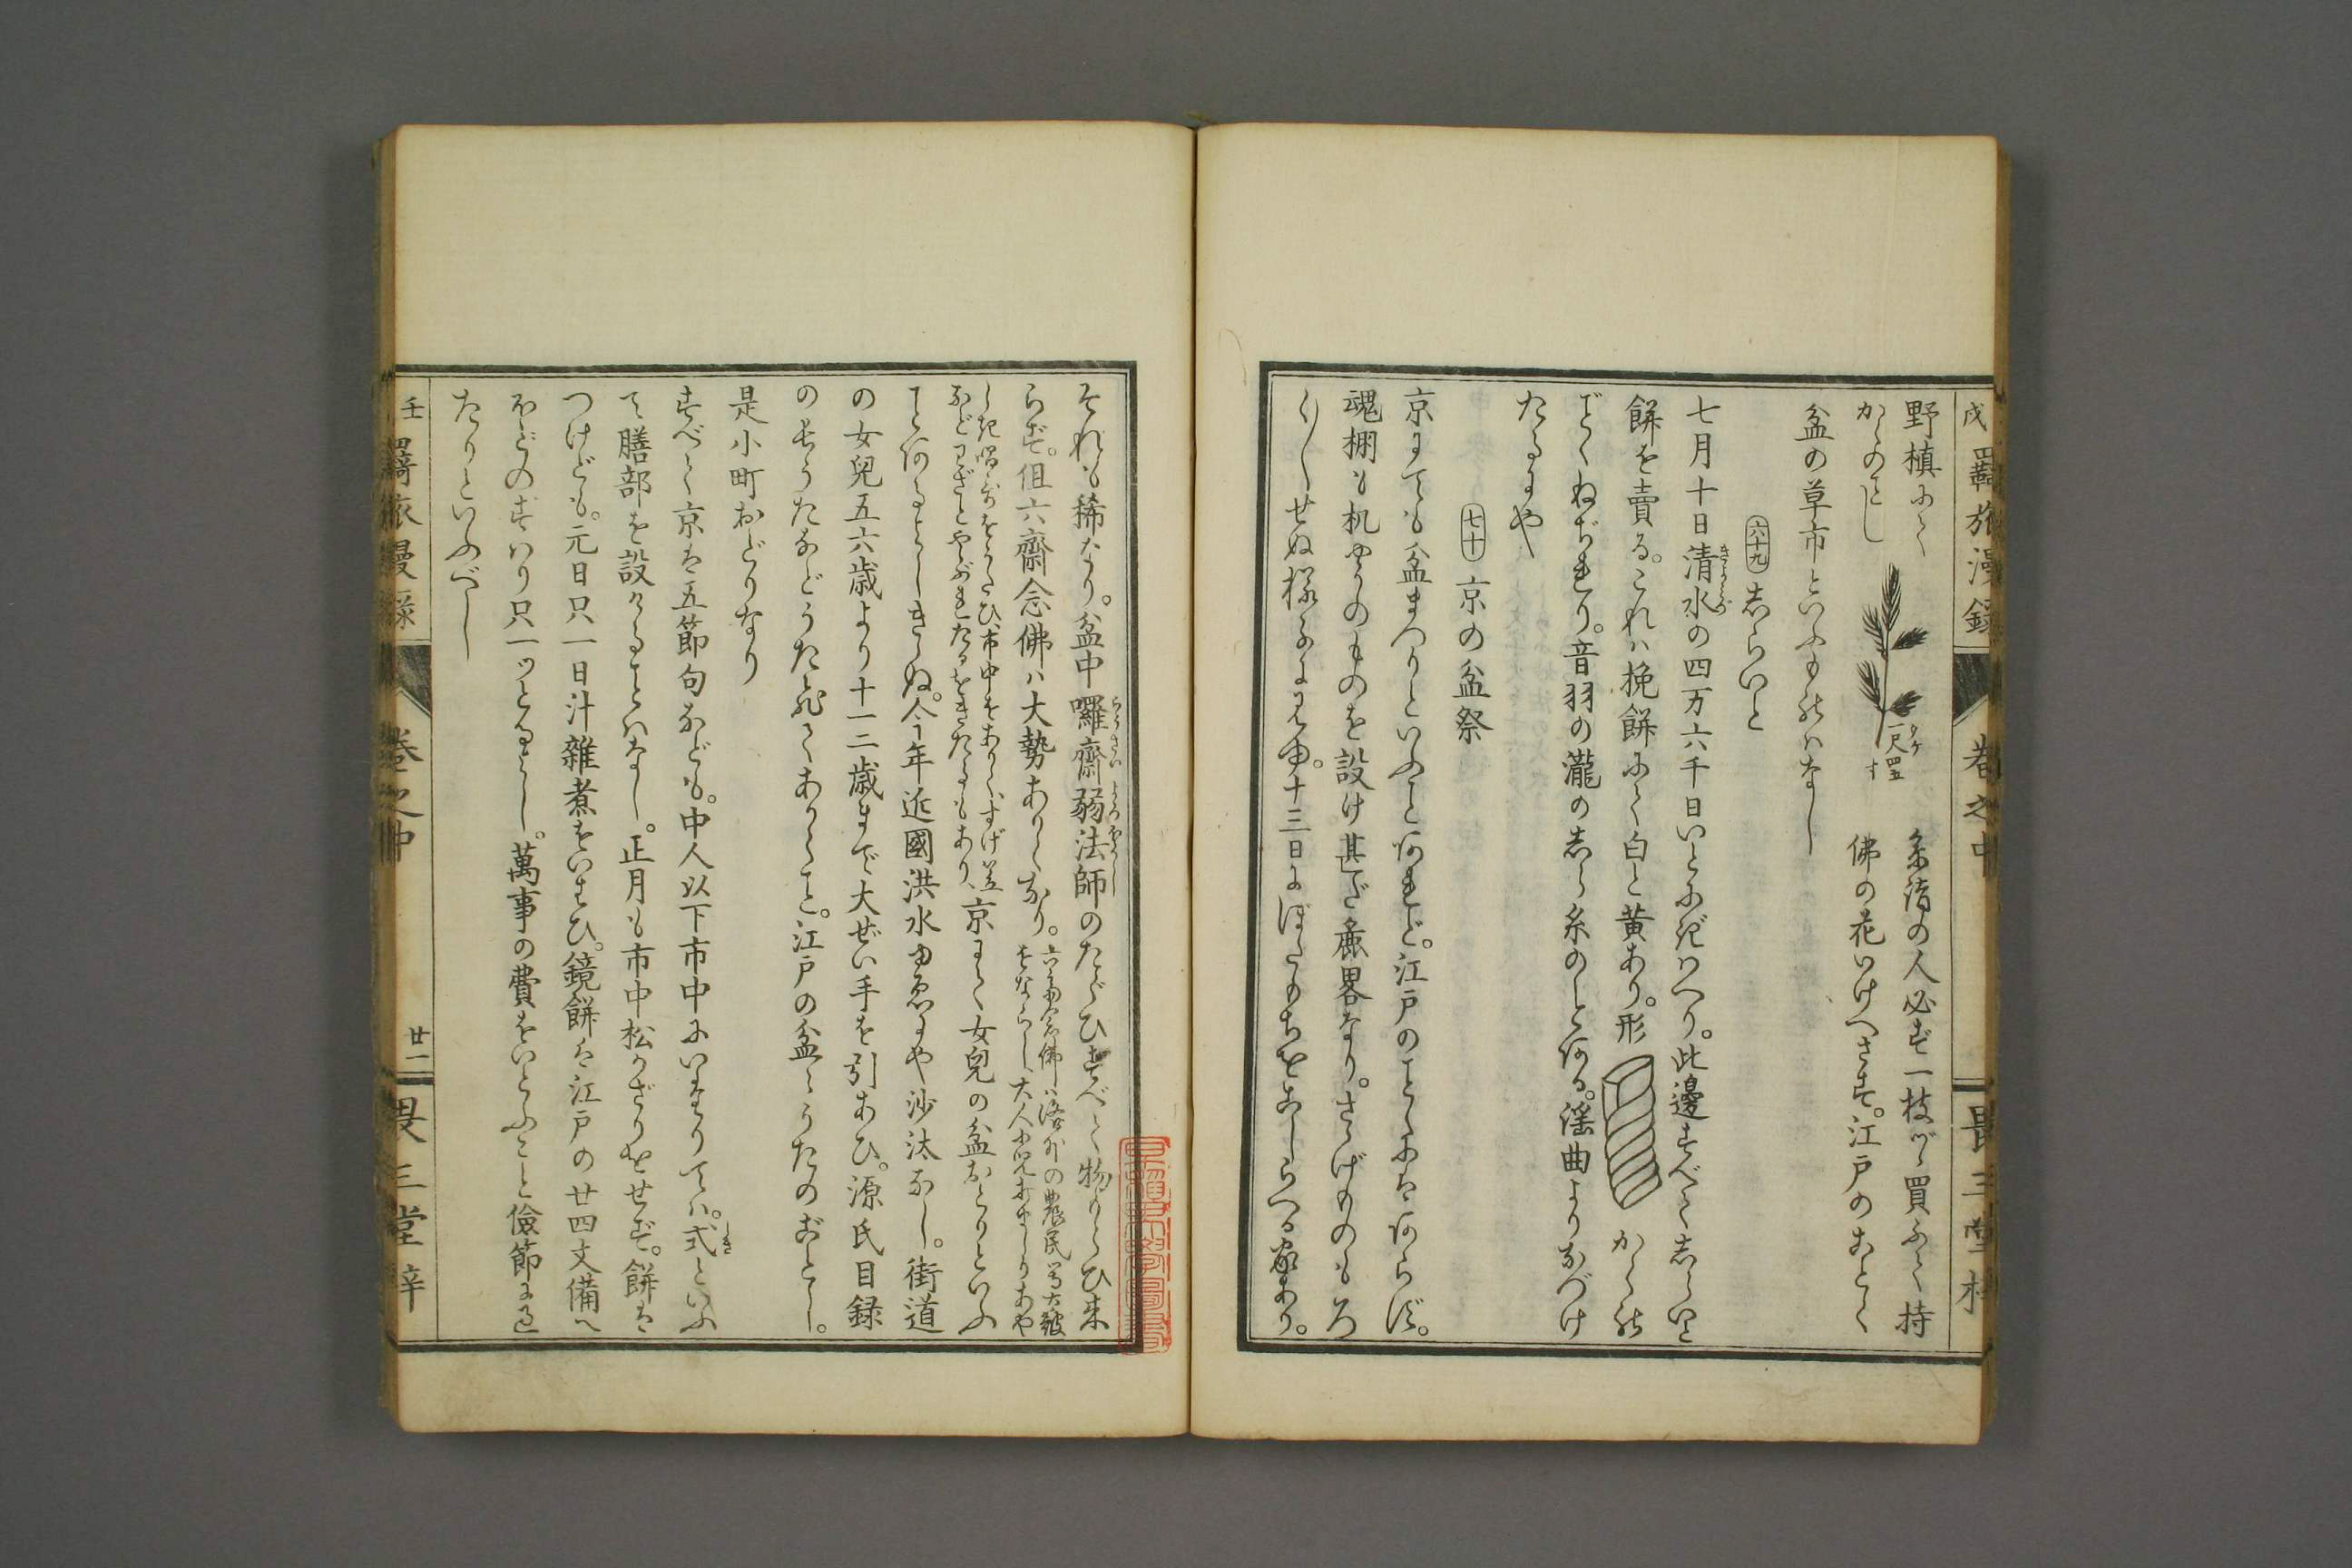 戊 羇旅漫録 巻之中 畏三堂梓
野槙にて
かくのごとし
タケ一尺四五寸
参詣の人必ず一枝づゝ買ふて持
佛の花いけへさす。江戸のごとく
盆の草市といふものはなし
六十九 しらいと
七月十日清水の四万六千日いとにぎはへり。此邊すべてしらいと
餅を賣る。これは挽餅にて白と黄あり。形 かくの
ごとくねぢれり。音羽の瀧のしら糸のごとある。謡曲よりなづけ
たるにや
七十 京の盆祭
京にても盆まつりといふことあれど。江戸のごとくにはあらず。
魂棚も机やうのものを設け甚だ麁畧なり。さゝげものもろ
くせぬ様子に見ゆ。十三日にぼたもちをこしらへる家あり。
それも稀なり。盆中囉齋弱法師のたぐひすべて物もらひ来
らず。但六齋念佛は大勢ありくなり。六斎念佛は洛外の農民等太皷
をならし大人小児打まじりあや
しき唱哥をうたひ、市中をありく、すげ笠
などわざとやぶれたるをきたるもあり、京にて女兒の盆おどりといふ
ことあるよしきゝぬ。今年近國洪水ゆゑにや沙汰なし。街道
の女兒五六歳より十二歳まで大ぜい手を引あひ。源氏目録
の長うたなどうたひてありくこと。江戸の盆々うたのごとし。
是小町おどりなり
すべて京は五節句なども。中人以下市中にいたりては。式といふ
て膳部を設けることはなし。正月も市中松かざりをせず。餅は
つけども。元日只一日汁雜煮をいはひ。鏡餅は江戸の廿四文備へ
ほどのすはり只一ッとるよし。萬事の費をいとふこと儉節に過
たりといふべし
壬 羇旅漫録 巻之中 廿一 畏三堂梓